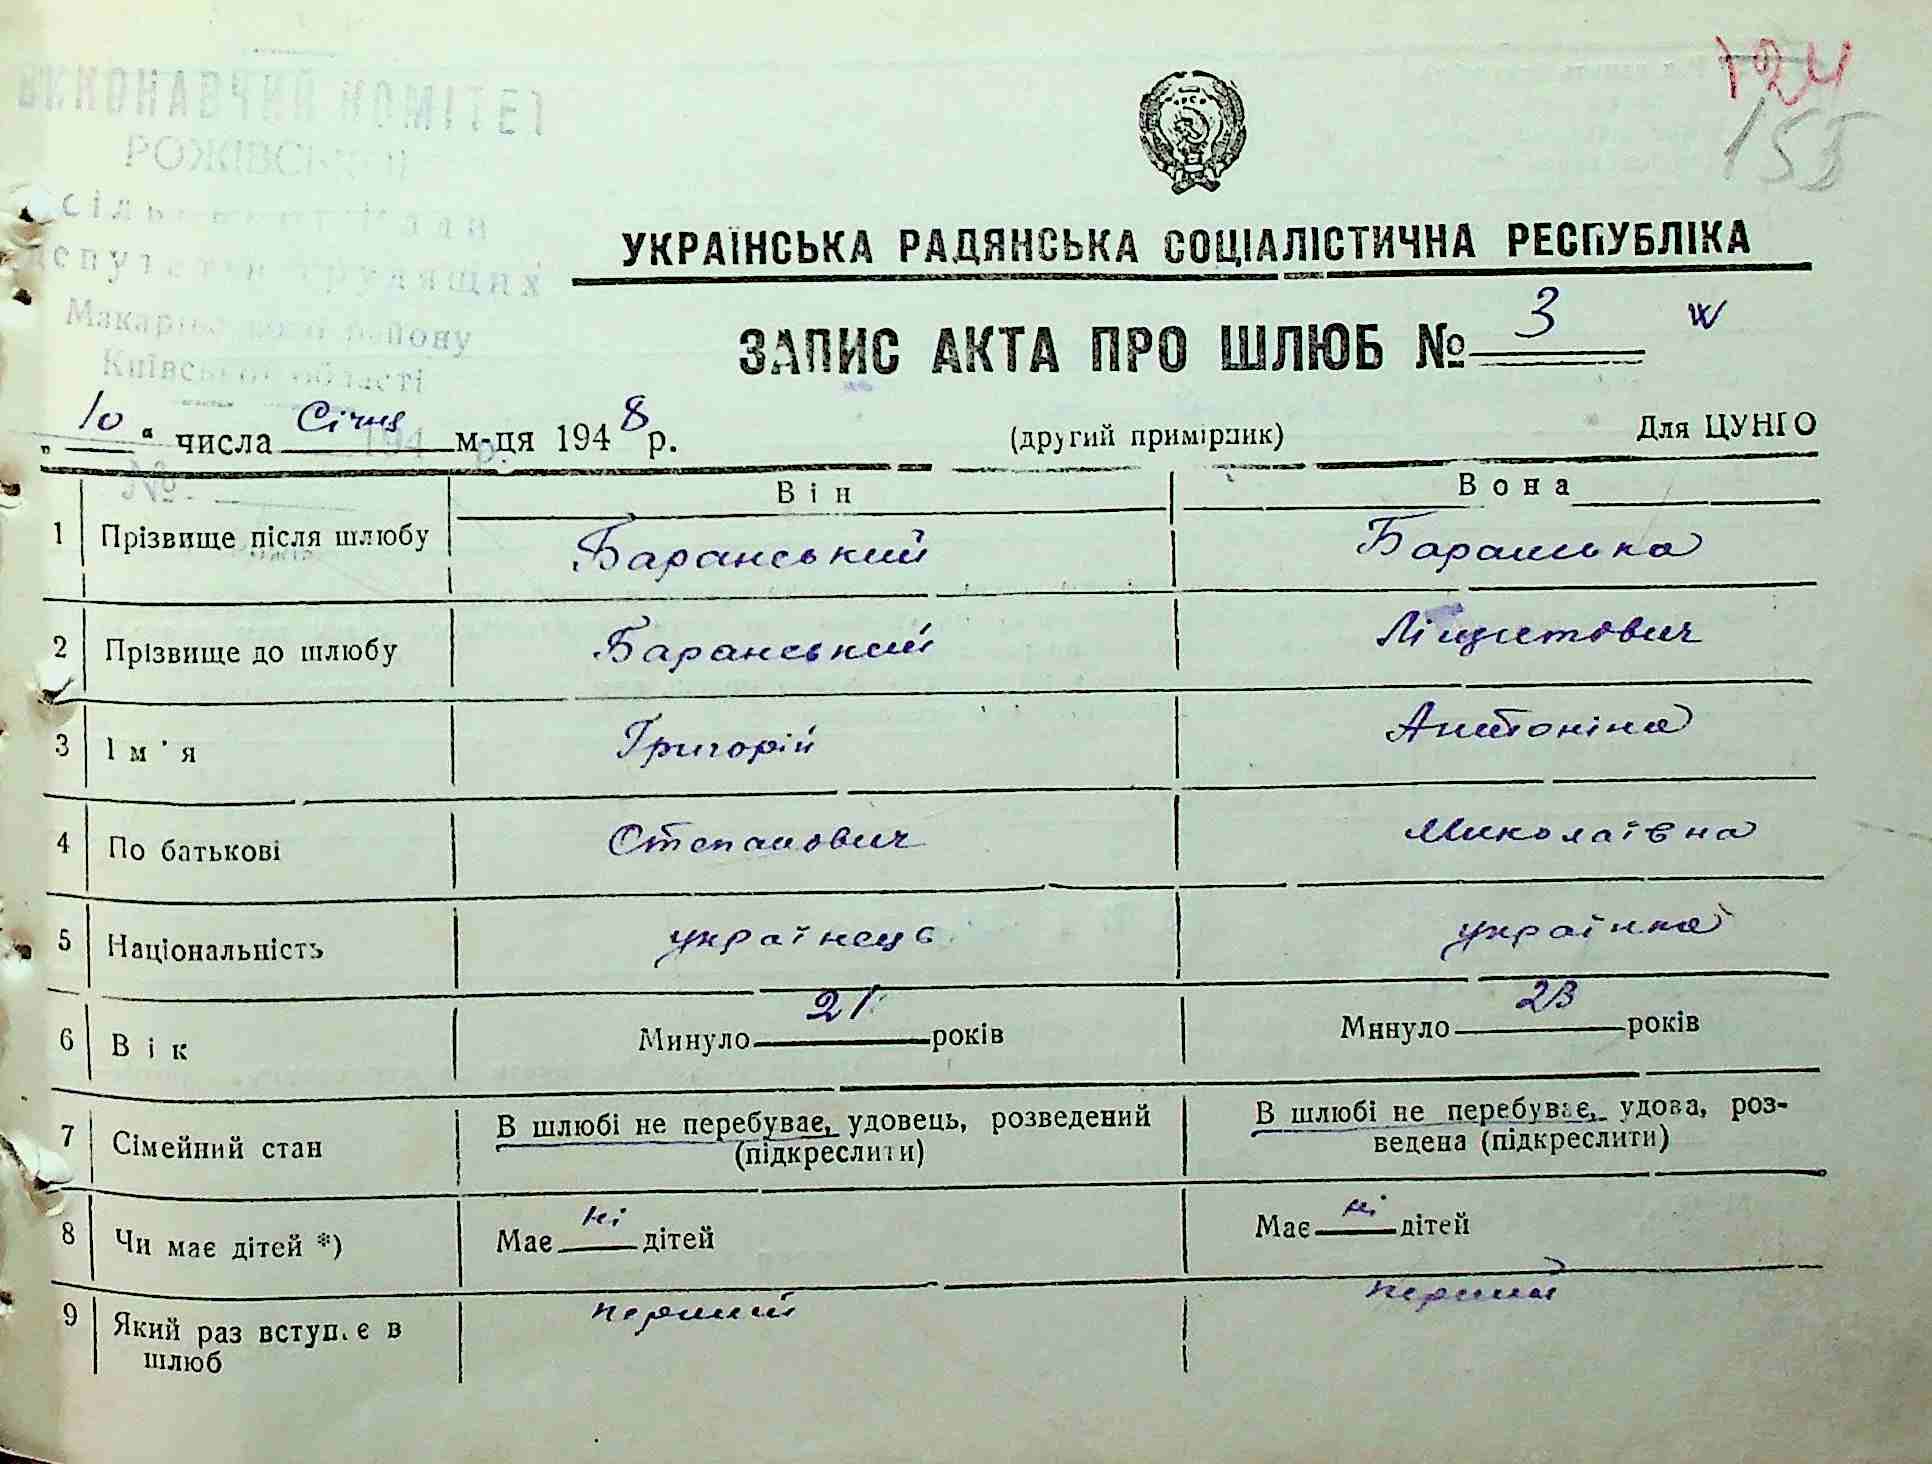 124
155
ВИКОНАВЧИЙ КОМІТЕТ
РОЖІВСЬКОЇ
сільської Ради
депутатів трудящих
Макарівського району
Київської області
194 р.
№
УКРАЇНСЬКА РАДЯНСЬКА СОЦІАЛІСТИЧНА РЕСПУБЛІКА
ЗАПИС АКТА ПРО ШЛЮБ № 3
„ 10 “ числа Січня м-ця 1948 р. (другий примірник) Для ЦУНГО
Він Вона
1 Прізвище після шлюбу Баранський Баранська
2 Прізвище до шлюбу Баранський
3 Ім'я Григорій Антоніна
4 По батькові Степанович Миколаївна
5 Національність українець українка
6 Вік Минуло 21 років Минуло 23 років
7 Сімейний стан В шлюбі не перебуває, удовець, розведений (підкреслити) В шлюбі не перебуває, удова, роз-
ведена (підкреслити)
8 Чи має дітей *) Має ні дітей Має ні дітей
9 Який раз вступає в шлюб перший перший